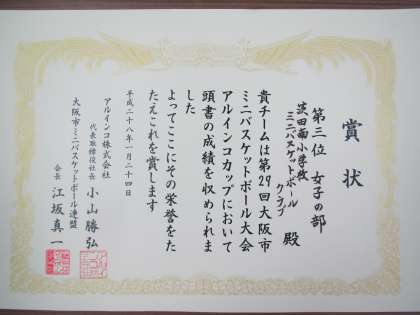 賞状
第三位 女子の部
茨田南小学校
ミニバスケットボール
クラブ
殿
貴チームは第29回大阪市
ミニバスケットボール大会
アルインコカップにおいて
頭書の成績を収められま
した
よってここにその栄誉をた
たえこれを賞します
平成二十八年一月二十四日
アルインコ株式会社
代表取締役社長 小山勝弘
大阪市ミニバスケットボール連盟
会長 江坂真一